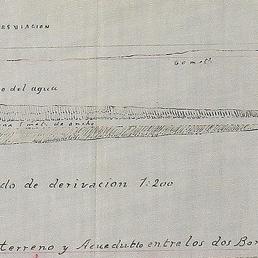 DESVIACION
o del agua
do de derivacion 1:200
terreno y Acuedutto entre los dos Bor